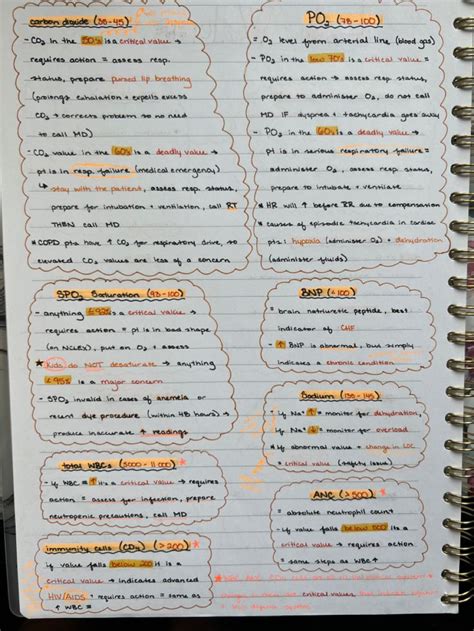 carbon dioxide (35-45)
- CO₂ in the 50's is a critical value →
requires action = assess resp.
status, prepare pursed lip breathing
(prolongs exhalation + expels excess
CO₂ → corrects problem so no need
to call MD)
- CO₂ value in the 60's is a deadly value →
pt is in resp. failure (medical emergency)
↳ stay with the patient, assess resp. status,
prepare for intubation + ventilation, call RT
THEN call MD
* COPD pts have ↑ CO₂ for respiratory drive, so
elevated CO₂ values are less of a concern
PO₂ (78-100)
= O₂ level from arterial line (blood gas)
- PO₂ in the low 70's is a critical value =
requires action → assess resp. status,
prepare to administer O₂, do not call
MD IF dyspnea + tachycardia goes away
- PO₂ in the 60's is a deadly value →
pt is in serious respiratory failure =
administer O₂, assess resp. status,
prepare to intubate + ventilate
* HR will ↑ before RR due to compensation
* causes of episodic tachycardia in cardiac
pts: hypoxia (administer O₂) + dehydration
(administer fluids)
SPO₂ Saturation (93-100)
- anything <93% is a critical value →
requires action = pt is in bad shape
(on NCLEX), put on O₂ + assess
* Kids do NOT desaturate → anything
<95% is a major concern
- SPO₂ invalid in cases of anemia or
recent dye procedure (within 48 hours) →
produce inaccurate ↑ readings
BNP (<100)
= brain natriuretic peptide, best
indicator of CHF
- ↑ BNP is abnormal, but simply
indicates a chronic condition
Sodium (135-145)
- if Na⁺ ↑ = monitor for dehydration,
if Na⁺ ↓ = monitor for overload
* if abnormal value + change in LOC
= critical value (safety issue)
total WBCs (5000-11 000) *
- if WBC = ↑ it's a critical value → requires
action = assess for infection, prepare
neutropenic precautions, call MD
ANC (>500) *
= absolute neutrophil count
- if value falls below 500 it's a
critical value → requires action =
same steps as WBC ↑
immunity cells (CD₄) (>200) *
if value falls below 200 it is a
critical value → indicates advanced
HIV/AIDS = requires action = same as
↑ WBC =
* WBC, ANC, CD₄
critical values that